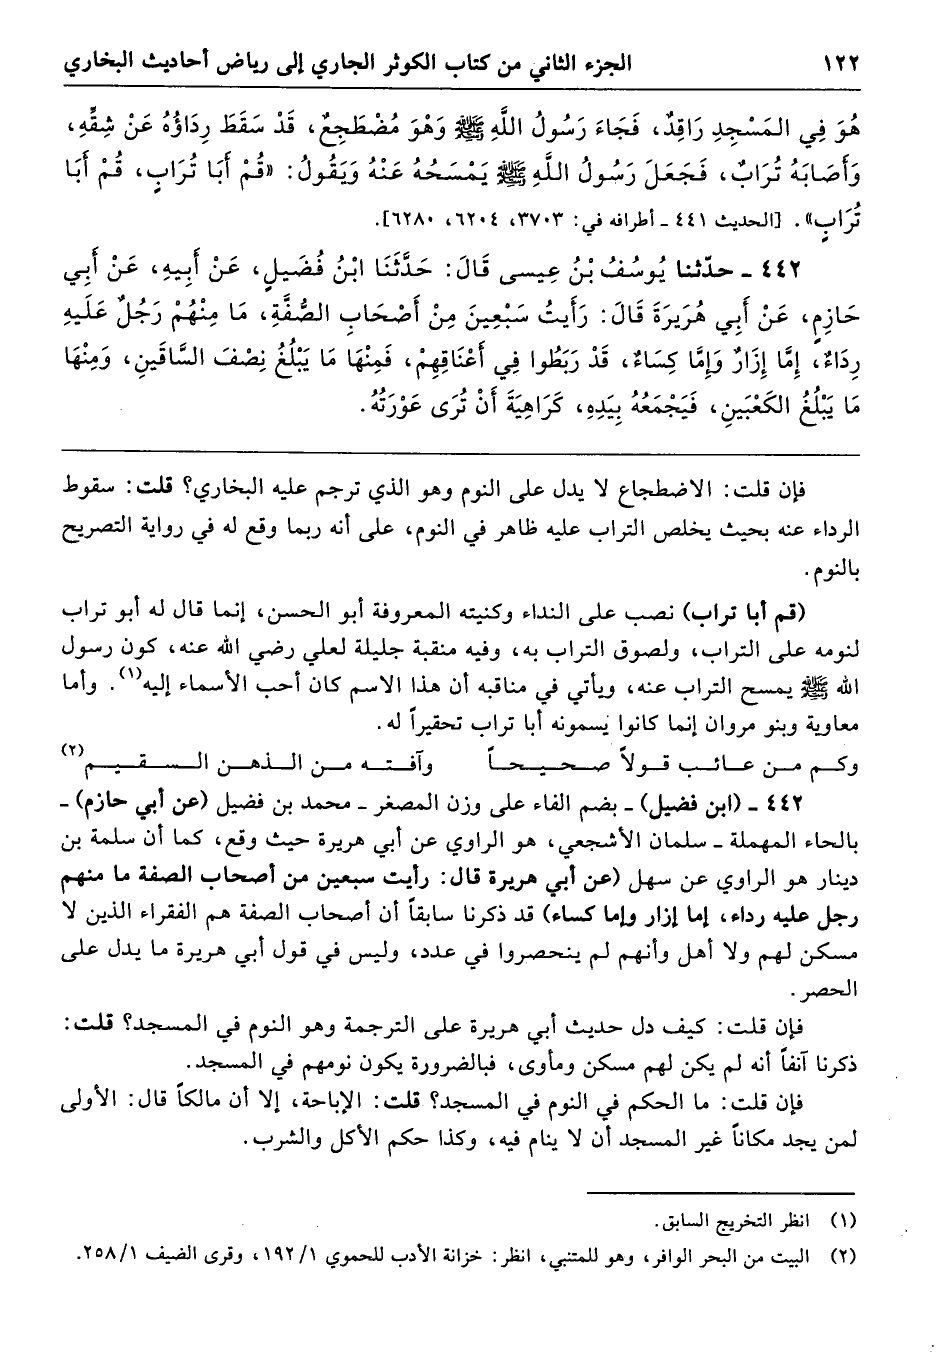 ١٢٢ الجزء الثاني من كتاب الكوثر الجاري إلى رياض أحاديث البخاري
هُوَ فِي المَسْجِدِ رَاقِدٌ، فَجَاءَ رَسُولُ اللَّهِ ﷺ وَهْوَ مُضْطَجِعٌ، قَدْ سَقَطَ رِدَاؤُهُ عَنْ شِقِّهِ،
وَأَصَابَهُ تُرَابٌ، فَجَعَلَ رَسُولُ اللَّهِ ﷺ يَمْسَحُهُ عَنْهُ وَيَقُولُ: «قُمْ أَبَا تُرَابٍ، قُمْ أَبَا
تُرَابٍ». [الحديث ٤٤١ ـ أطرافه في: ٣٧٠٣، ٦٢٠٤، ٦٢٨٠].
٤٤٢ ـ حدّثنا يُوسُفُ بْنُ عِيسى قَالَ: حَدَّثَنَا ابْنُ فُضَيلٍ، عَنْ أَبِيهِ، عَنْ أَبِي
حَازِمٍ، عَنْ أَبِي هُرَيرَةَ قَالَ: رَأَيتُ سَبْعِينَ مِنْ أَصْحَابِ الصُّفَّةِ، مَا مِنْهُمْ رَجُلٌ عَلَيهِ
رِدَاءٌ، إِمَّا إِزَارٌ وَإِمَّا كِسَاءٌ، قَدْ رَبَطُوا فِي أَعْنَاقِهِمْ، فَمِنْهَا مَا يَبْلُغُ نِصْفَ السَّاقَينِ، وَمِنْهَا
مَا يَبْلُغُ الكَعْبَينِ، فَيَجْمَعُهُ بِيَدِهِ، كَرَاهِيَةَ أَنْ تُرَى عَوْرَتُهُ.
فإن قلت: الاضطجاع لا يدل على النوم وهو الذي ترجم عليه البخاري؟ قلت: سقوط
الرداء عنه بحيث يخلص التراب عليه ظاهر في النوم، على أنه ربما وقع له في رواية التصريح
بالنوم.
(قم أبا تراب) نصب على النداء وكنيته المعروفة أبو الحسن، إنما قال له أبو تراب
لنومه على التراب، ولصوق التراب به، وفيه منقبة جليلة لعلي رضي الله عنه، كون رسول
الله ﷺ يمسح التراب عنه، ويأتي في مناقبه أن هذا الاسم كان أحب الأسماء إليه(١). وأما
معاوية وبنو مروان إنما كانوا يسمونه أبا تراب تحقيراً له.
وكم من عائب قولاً صحيحاً وآفته من الذهن السقيم(٢)
٤٤٢ ـ (ابن فضيل) ـ بضم الفاء على وزن المصغر ـ محمد بن فضيل (عن أبي حازم) ـ
بالحاء المهملة ـ سلمان الأشجعي، هو الراوي عن أبي هريرة حيث وقع، كما أن سلمة بن
دينار هو الراوي عن سهل (عن أبي هريرة قال: رأيت سبعين من أصحاب الصفة ما منهم
رجل عليه رداء، إما إزار وإما كساء) قد ذكرنا سابقاً أن أصحاب الصفة هم الفقراء الذين لا
مسكن لهم ولا أهل وأنهم لم ينحصروا في عدد، وليس في قول أبي هريرة ما يدل على
الحصر.
فإن قلت: كيف دل حديث أبي هريرة على الترجمة وهو النوم في المسجد؟ قلت:
ذكرنا آنفاً أنه لم يكن لهم مسكن ومأوى، فبالضرورة يكون نومهم في المسجد.
فإن قلت: ما الحكم في النوم في المسجد؟ قلت: الإباحة، إلا أن مالكاً قال: الأولى
لمن يجد مكاناً غير المسجد أن لا ينام فيه، وكذا حكم الأكل والشرب.
(١) انظر التخريج السابق.
(٢) البيت من البحر الوافر، وهو للمتنبي، انظر: خزانة الأدب للحموي ١/ ١٩٢، وقرى الضيف ١/ ٢٥٨.